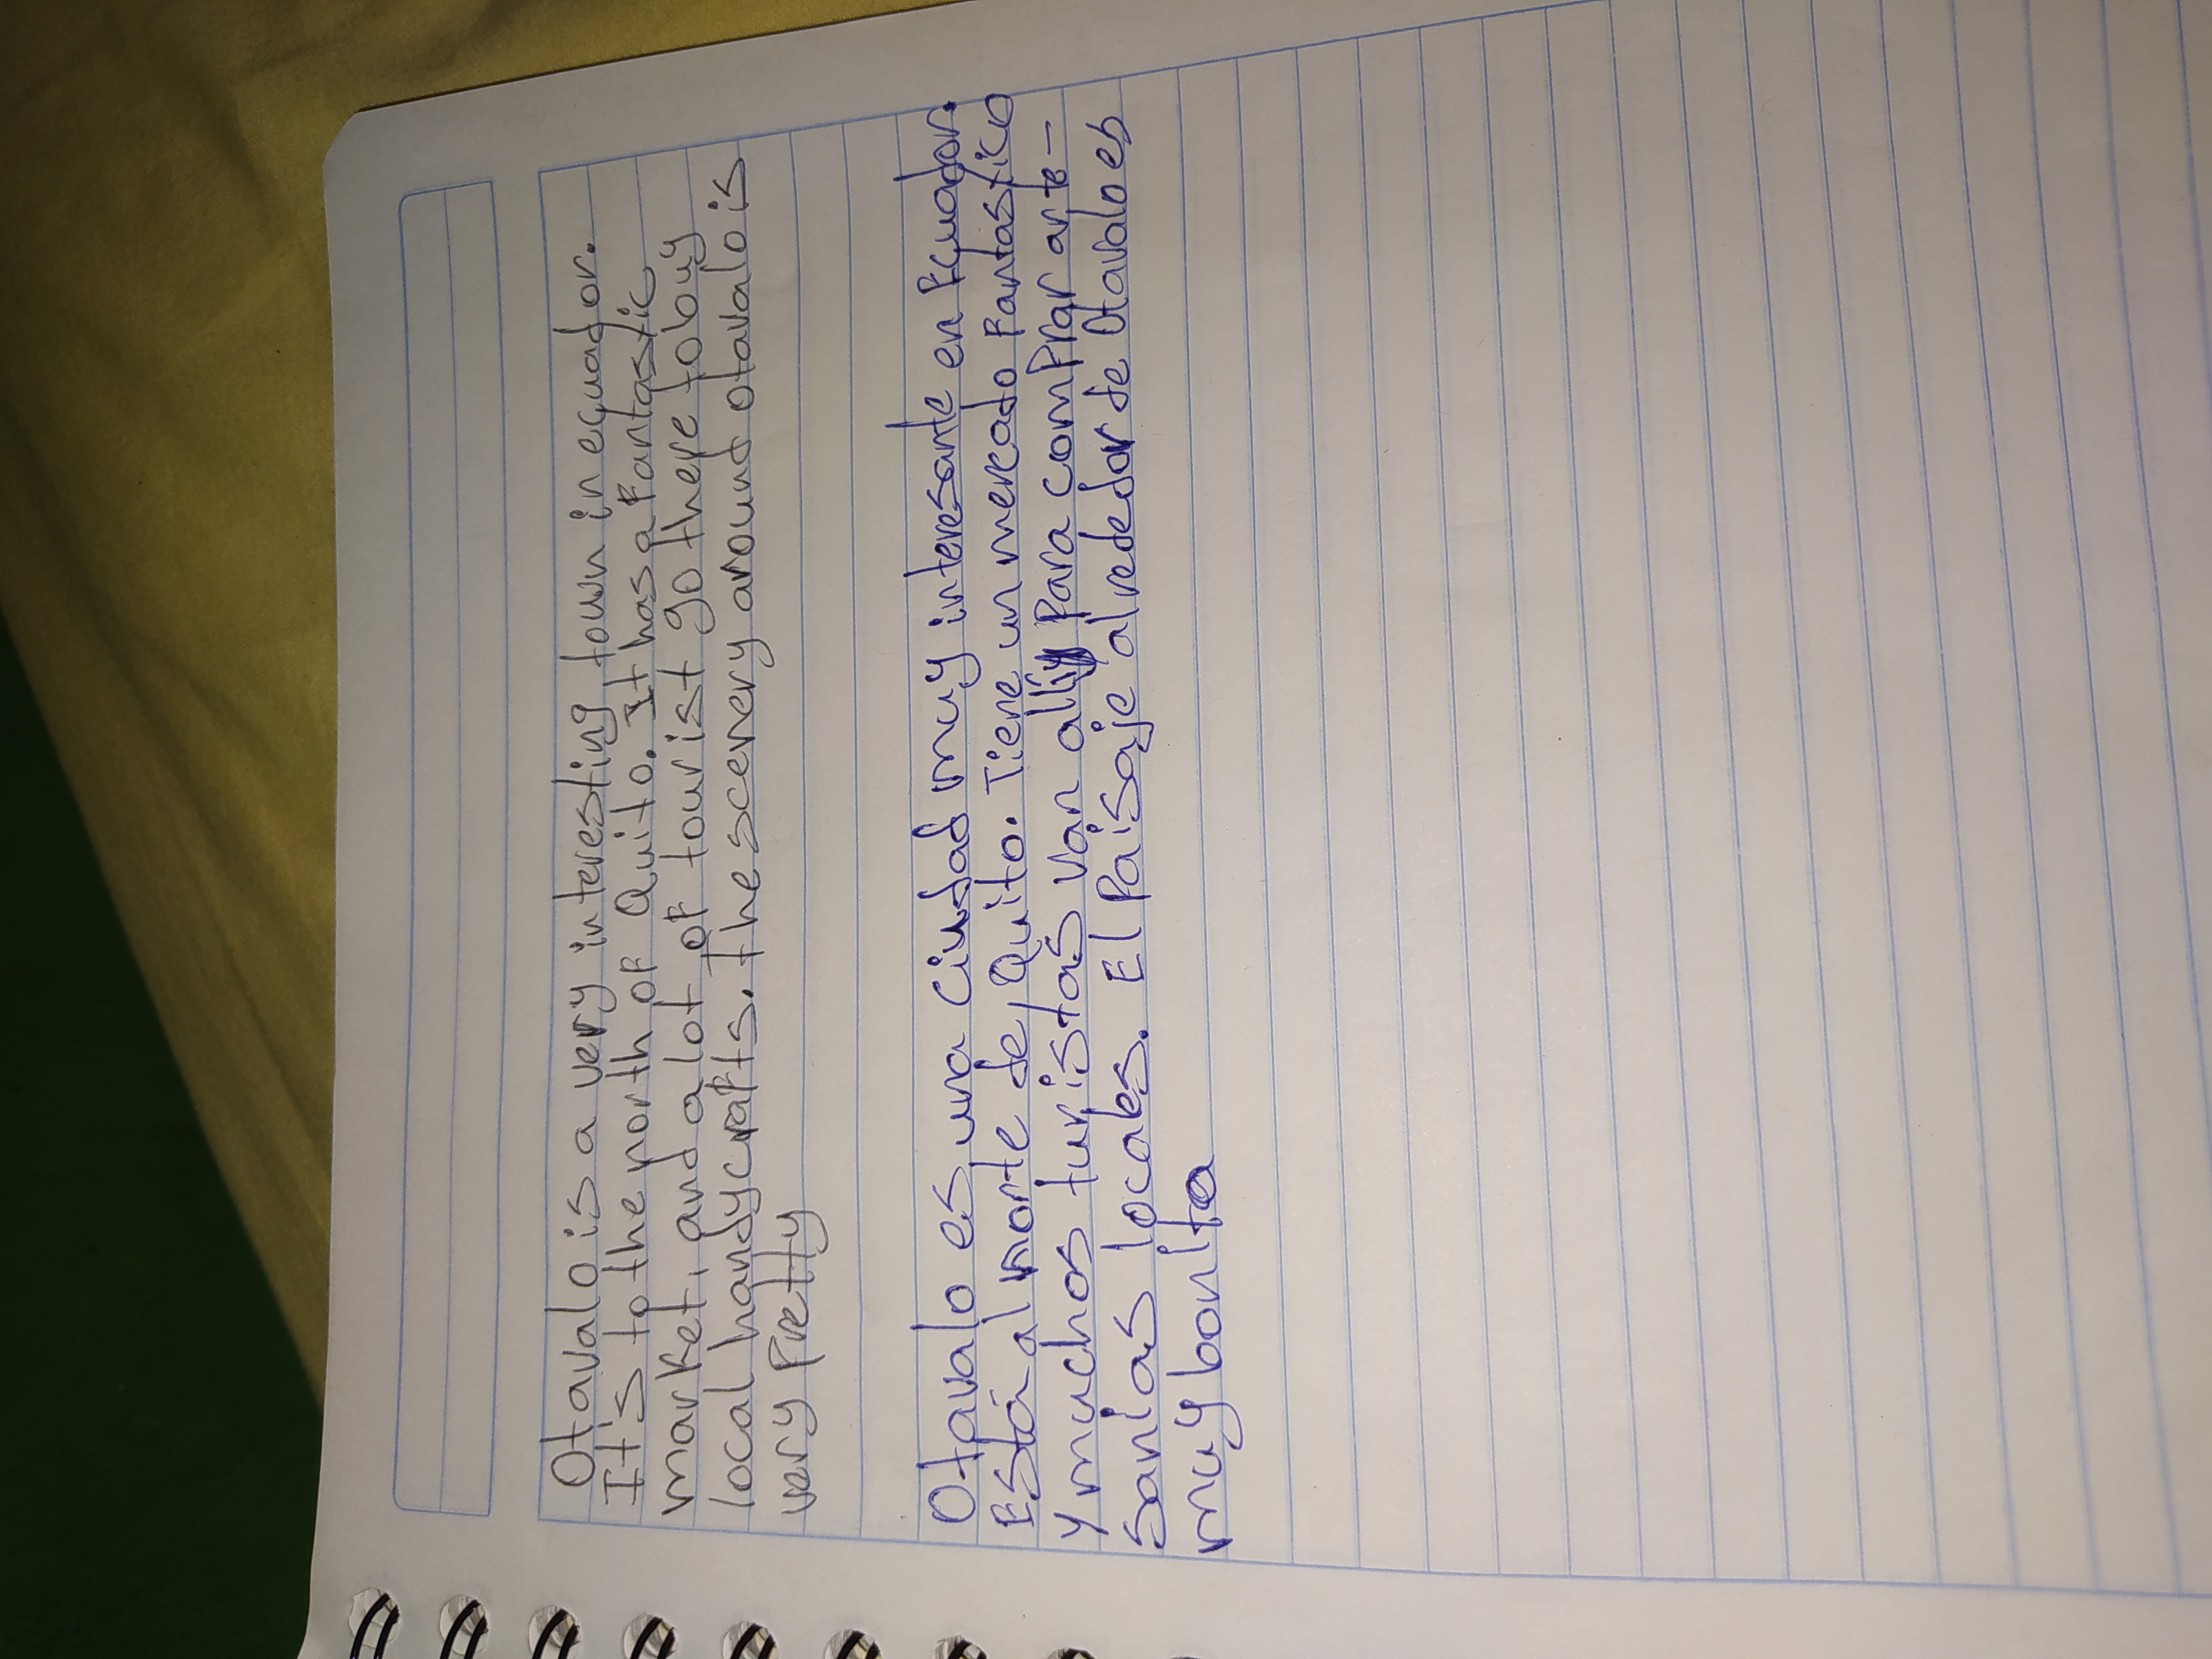 Otavalo is a very interesting town in ecuador.
It's to the north of Quito. It has a fantastic
market, and a lot of tourist go there to buy
local handycrafts. the scenery around otavalo is
very Pretty
Otavalo es una Ciudad muy interesante en Ecuador.
Está al norte de Quito. Tiene un mercado fantastico
y muchos turistas van allí Para comPrar arte-
sanias locales. El Paisaje alrededor de Otavalo es
muy bonita